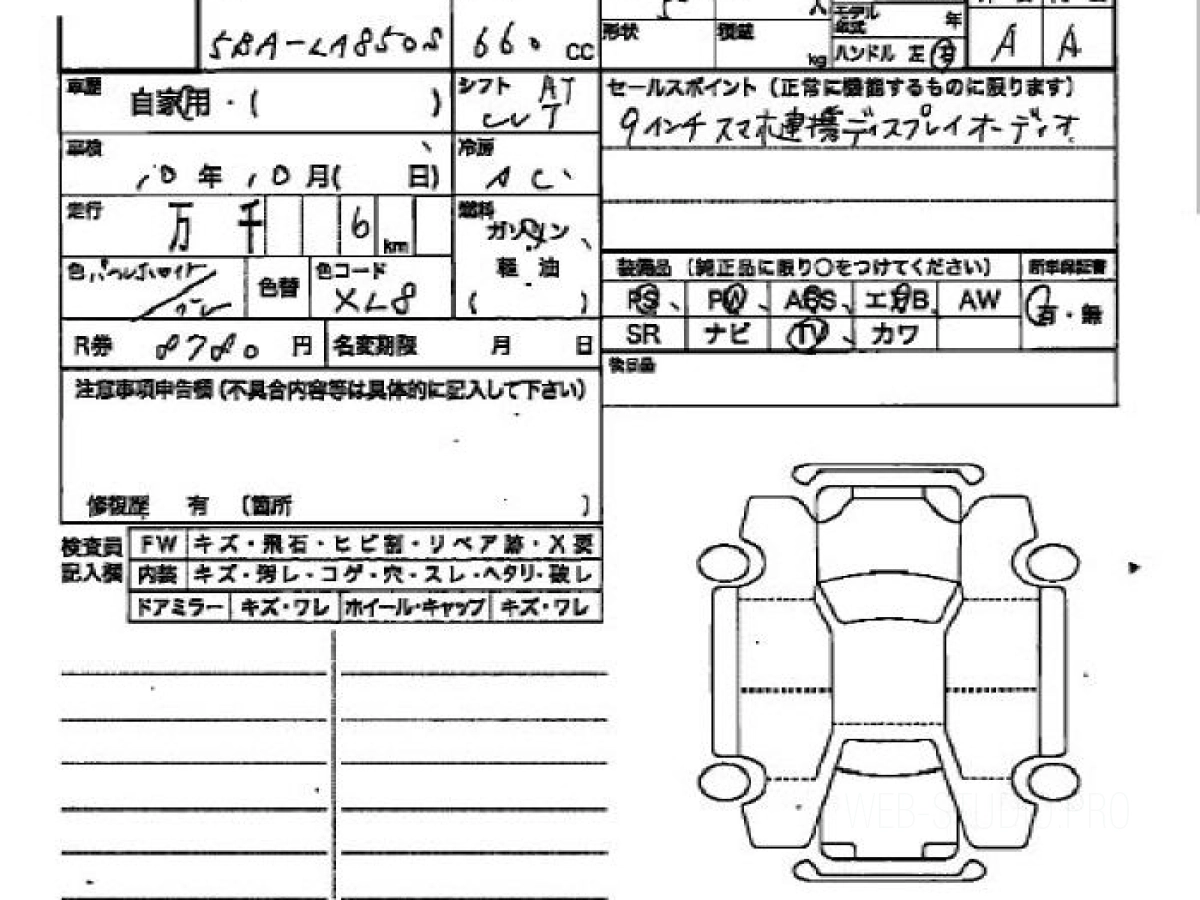 モデル年式 年
形状 積載 kg ハンドル 左 右 A A
5BA-LA850S 660 CC
車歴 自家用・( )
シフト AT CVT
セールスポイント (正常に機能するものに限ります)
9インチスマホ連携ディスプレイオーディオ
車検 10年10月( 日)
冷房 AC
走行 万 千 6 km
燃料 ガソリン
軽油
( )
色 パールホワイト 色替 色コード XL8
装備品 (純正品に限り○をつけてください) 新車保証書
PS PW ABS エアB AW 有・無
SR ナビ TV カワ
R券 8780 円 名変期限 月 日
後日品
注意事項申告欄(不具合内容等は具体的に記入して下さい)
修復歴 有 (箇所 )
検査員記入欄
FW キズ・飛石・ヒビ割・リペア跡・X要
内装 キズ・汚レ・コゲ・穴・スレ・ヘタリ・破レ
ドアミラー キズ・ワレ ホイール・キャップ キズ・ワレ
WEB-STUDIO.PRO